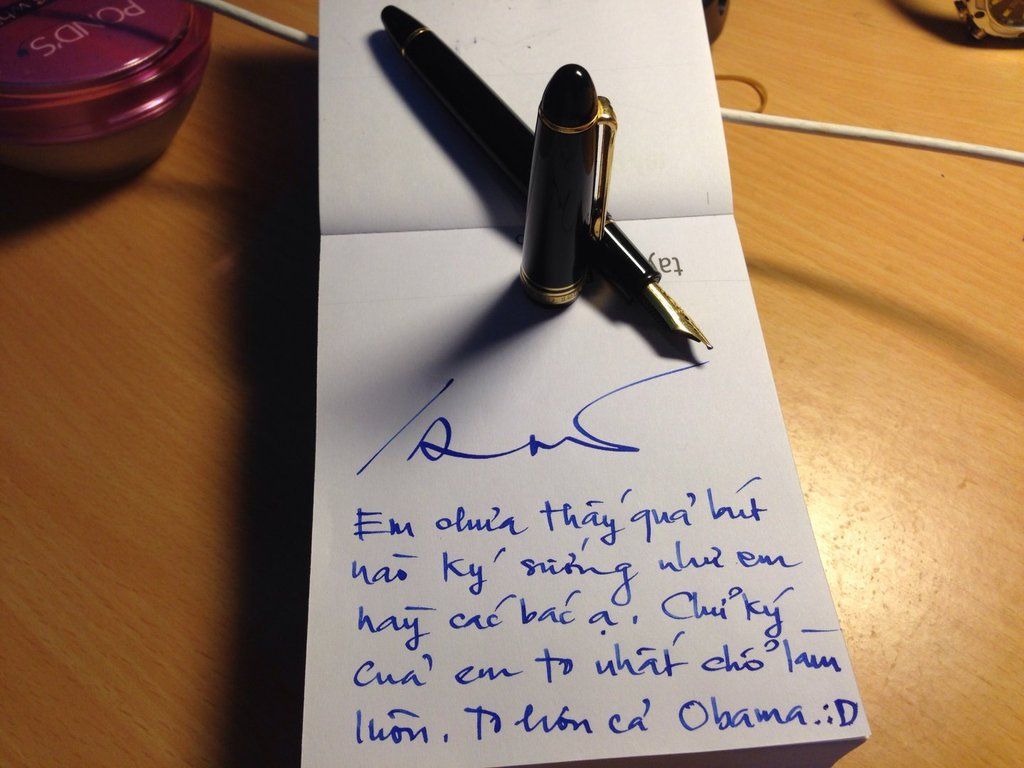 POND'S
tay
Em chưa thấy quả bút
nào ký sướng như em
này các bác ạ. Chữ ký
của em to nhất chỗ làm
luôn. To hơn cả Obama. :D